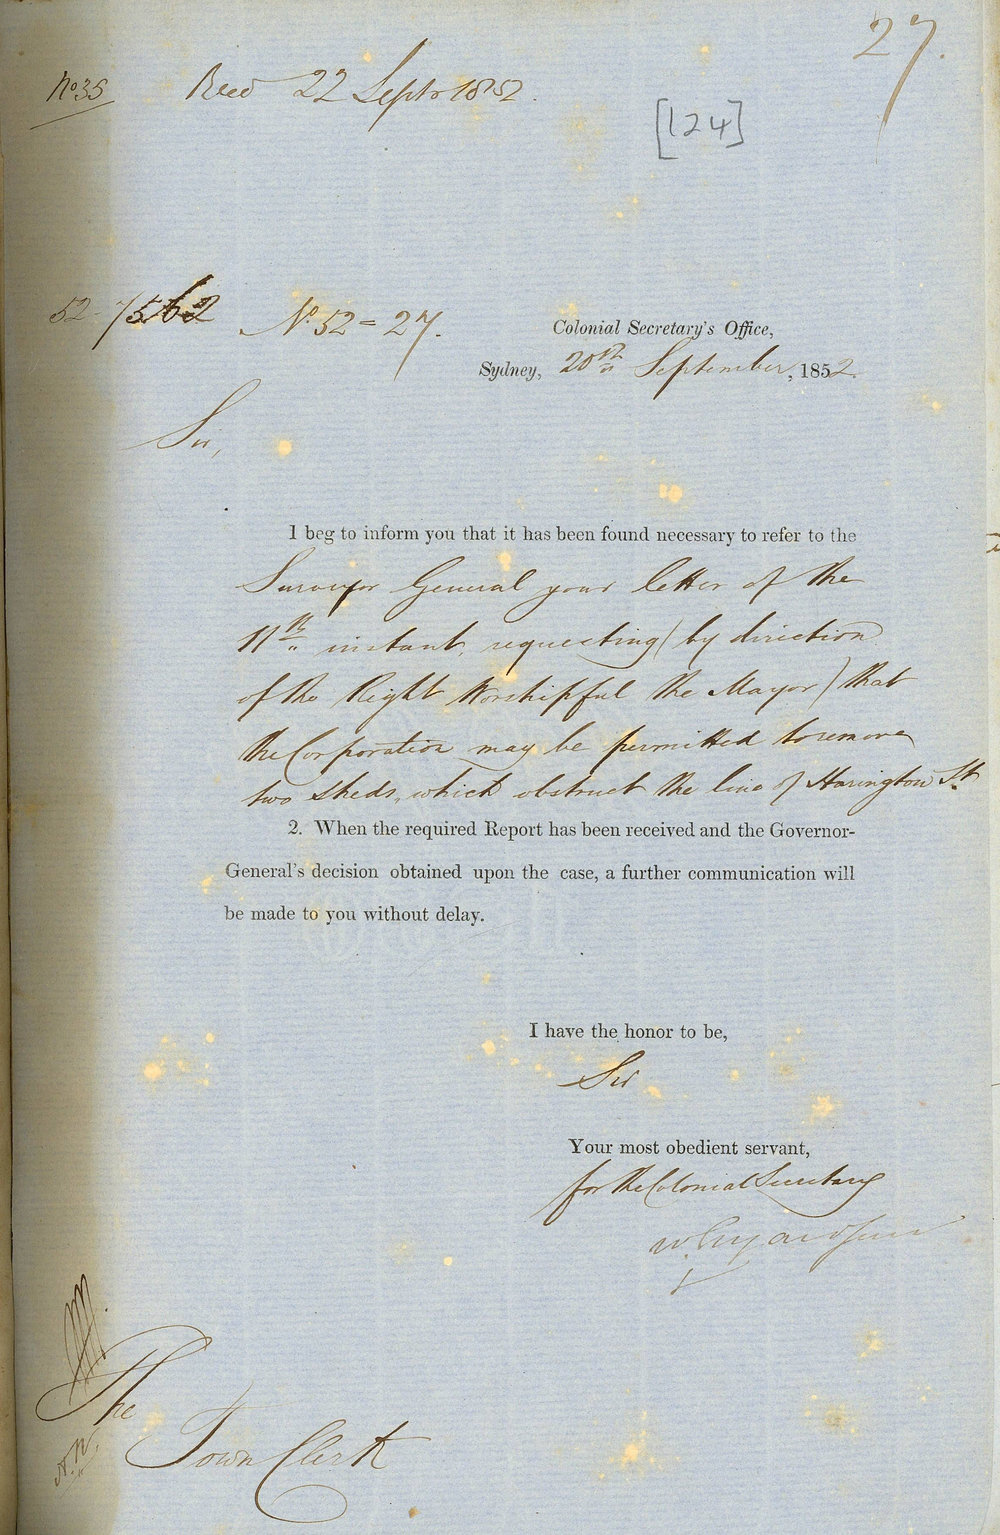 27.
No 35 Recd 22 Septr 1852.
[124]
52-7562 No. 52=27.
Colonial Secretary's Office,
Sydney, 20th September, 1852.
Sir,
I beg to inform you that it has been found necessary to refer to the
Surveyor General your letter of the
11th instant, requesting (by direction
of the Right Worshipful the Mayor) that
the Corporation may be permitted to remove
two sheds, which obstruct the line of Harington St.
2. When the required Report has been received and the Governor-
General's decision obtained upon the case, a further communication will
be made to you without delay.
I have the honor to be,
Sir
Your most obedient servant,
for the Colonial Secretary
W.
The
Town Clerk